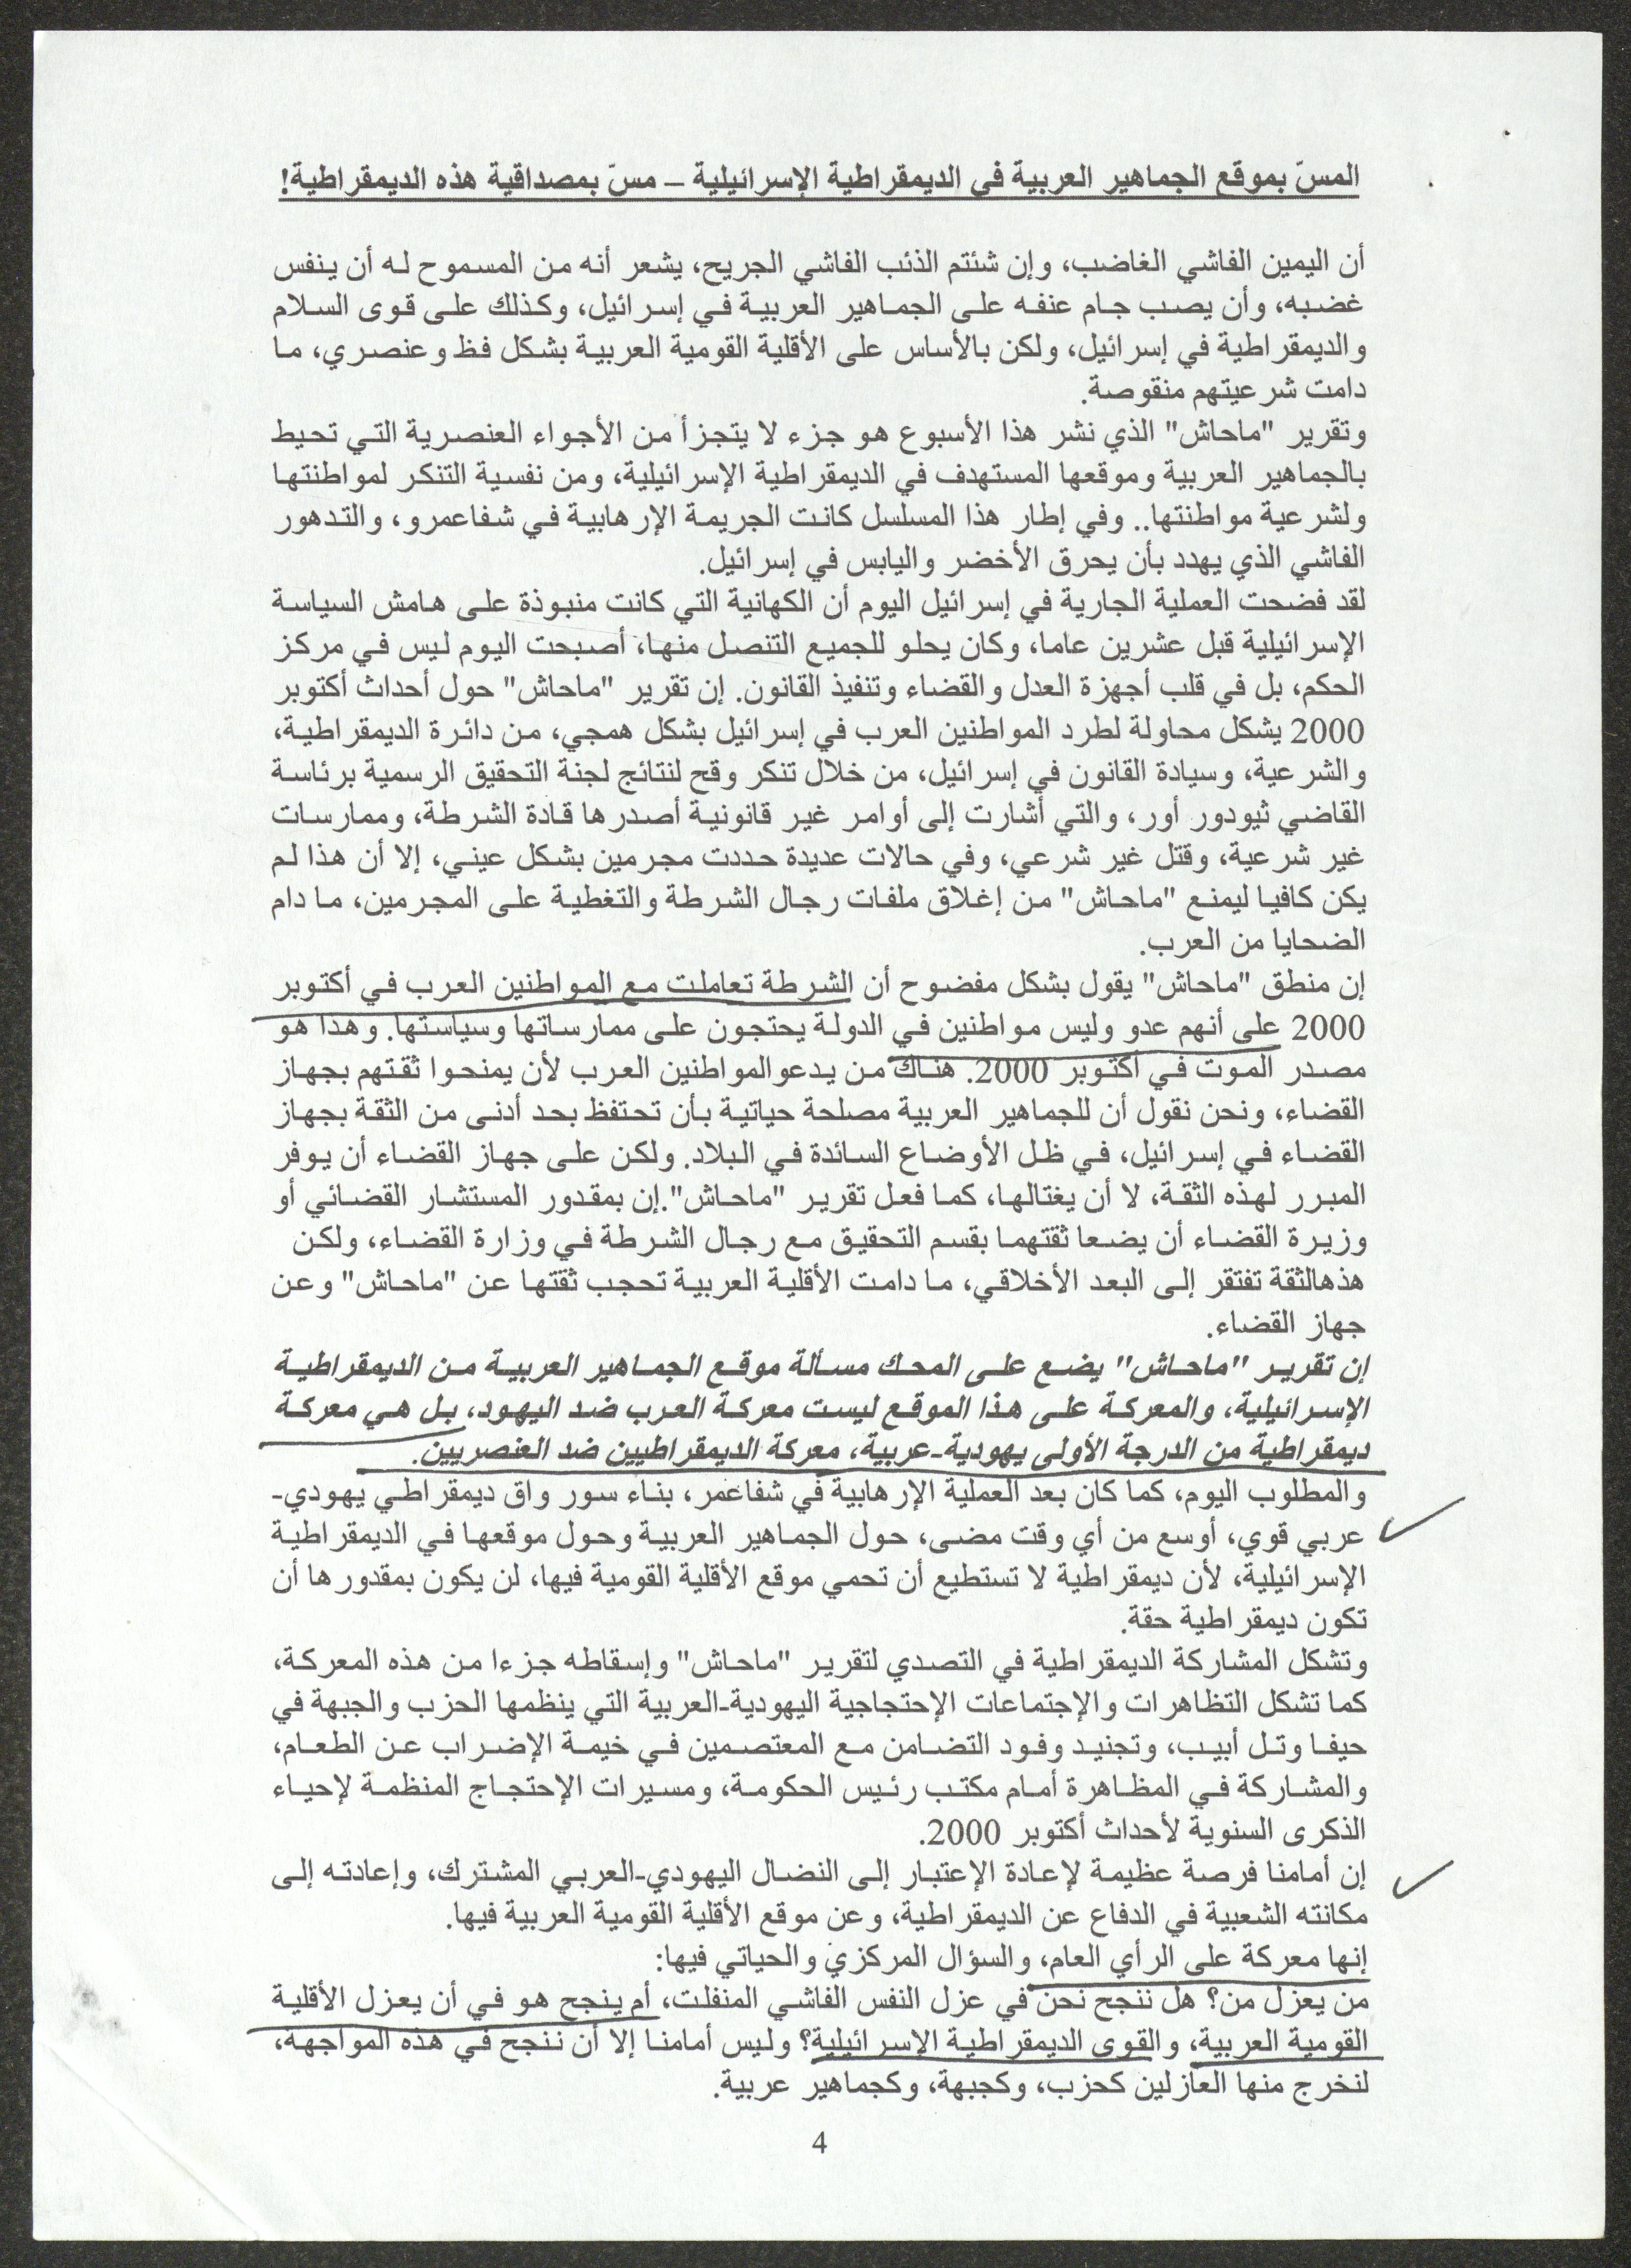 المسّ بموقع الجماهير العربية في الديمقراطية الإسرائيلية – مسّ بمصداقية هذه الديمقراطية!
أن اليمين الفاشي الغاضب، وإن شئتم الذئب الفاشي الجريح، يشعر أنه من المسموح له أن ينفس
غضبه، وأن يصب جام عنفه على الجماهير العربية في إسرائيل، وكذلك على قوى السلام
والديمقراطية في إسرائيل، ولكن بالأساس على الأقلية القومية العربية بشكل فظ وعنصري، ما
دامت شرعيتهم منقوصة.
وتقرير "ماحاش" الذي نشر هذا الأسبوع هو جزء لا يتجزأ من الأجواء العنصرية التي تحيط
بالجماهير العربية وموقعها المستهدف في الديمقراطية الإسرائيلية، ومن نفسية التنكر لمواطنتها
ولشرعية مواطنتها.. وفي إطار هذا المسلسل كانت الجريمة الإرهابية في شفاعمرو، والتدهور
الفاشي الذي يهدد بأن يحرق الأخضر واليابس في إسرائيل.
لقد فضحت العملية الجارية في إسرائيل اليوم أن الكهانية التي كانت منبوذة على هامش السياسة
الإسرائيلية قبل عشرين عاما، وكان يحلو للجميع التنصل منها، أصبحت اليوم ليس في مركز
الحكم، بل في قلب أجهزة العدل والقضاء وتنفيذ القانون. إن تقرير "ماحاش" حول أحداث أكتوبر
2000 يشكل محاولة لطرد المواطنين العرب في إسرائيل بشكل همجي، من دائرة الديمقراطية،
والشرعية، وسيادة القانون في إسرائيل، من خلال تنكر وقح لنتائج لجنة التحقيق الرسمية برئاسة
القاضي ثيودور أور، والتي أشارت إلى أوامر غير قانونية أصدرها قادة الشرطة، وممارسات
غير شرعية، وقتل غير شرعي، وفي حالات عديدة حددت مجرمين بشكل عيني، إلا أن هذا لم
يكن كافيا ليمنع "ماحاش" من إغلاق ملفات رجال الشرطة والتغطية على المجرمين، ما دام
الضحايا من العرب.
إن منطق "ماحاش" يقول بشكل مفضوح أن الشرطة تعاملت مع المواطنين العرب في أكتوبر
2000 على أنهم عدو وليس مواطنين في الدولة يحتجون على ممارساتها وسياستها. وهذا هو
مصدر الموت في أكتوبر 2000. هناك من يدعوالمواطنين العرب لأن يمنحوا ثقتهم بجهاز
القضاء، ونحن نقول أن للجماهير العربية مصلحة حياتية بأن تحتفظ بحد أدنى من الثقة بجهاز
القضاء في إسرائيل، في ظل الأوضاع السائدة في البلاد. ولكن على جهاز القضاء أن يوفر
المبرر لهذه الثقة، لا أن يغتالها، كما فعل تقرير "ماحاش".إن بمقدور المستشار القضائي أو
وزيرة القضاء أن يضعا ثقتهما بقسم التحقيق مع رجال الشرطة في وزارة القضاء، ولكن
هذهالثقة تفتقر إلى البعد الأخلاقي، ما دامت الأقلية العربية تحجب ثقتها عن "ماحاش" وعن
جهاز القضاء.
إن تقرير "ماحاش" يضع على المحك مسألة موقع الجماهير العربية من الديمقراطية
الإسرائيلية، والمعركة على هذا الموقع ليست معركة العرب ضد اليهود، بل هي معركة
ديمقراطية من الدرجة الأولى يهودية-عربية، معركة الديمقراطيين ضد العنصريين.
والمطلوب اليوم، كما كان بعد العملية الإرهابية في شفاعمر، بناء سور واق ديمقراطي يهودي-
عربي قوي، أوسع من أي وقت مضى، حول الجماهير العربية وحول موقعها في الديمقراطية
الإسرائيلية، لأن ديمقراطية لا تستطيع أن تحمي موقع الأقلية القومية فيها، لن يكون بمقدورها أن
تكون ديمقراطية حقة.
وتشكل المشاركة الديمقراطية في التصدي لتقرير "ماحاش" وإسقاطه جزءا من هذه المعركة،
كما تشكل التظاهرات والإجتماعات الإحتجاجية اليهودية-العربية التي ينظمها الحزب والجبهة في
حيفا وتل أبيب، وتجنيد وفود التضامن مع المعتصمين في خيمة الإضراب عن الطعام،
والمشاركة في المظاهرة أمام مكتب رئيس الحكومة، ومسيرات الإحتجاج المنظمة لإحياء
الذكرى السنوية لأحداث أكتوبر 2000.
إن أمامنا فرصة عظيمة لإعادة الإعتبار إلى النضال اليهودي-العربي المشترك، وإعادته إلى
مكانته الشعبية في الدفاع عن الديمقراطية، وعن موقع الأقلية القومية العربية فيها.
إنها معركة على الرأي العام، والسؤال المركزي والحياتي فيها:
من يعزل من؟ هل ننجح نحن في عزل النفس الفاشي المنفلت، أم ينجح هو في أن يعزل الأقلية
القومية العربية، والقوى الديمقراطية الإسرائيلية؟ وليس أمامنا إلا أن ننجح في هذه المواجهة،
لنخرج منها العازلين كحزب، وكجبهة، وكجماهير عربية.
4